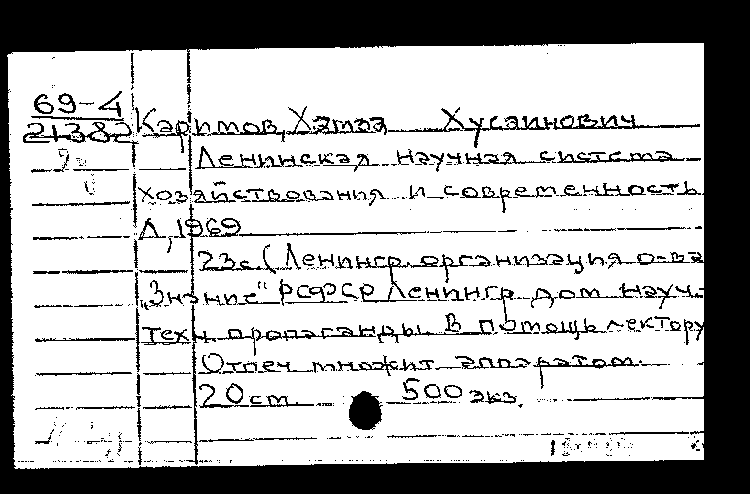 69-4
21382
Каримов, Хатза Хусаинович
Ленинская научная система
хозяйствования и современность
Л, 1969
23с. (Ленингр. организация о-ва
"Знание" РСФСР Ленингр. дом науч.-
техн. пропаганды. В помощь лектору
Отпеч множит. аппаратом.
20 см. 500 экз.